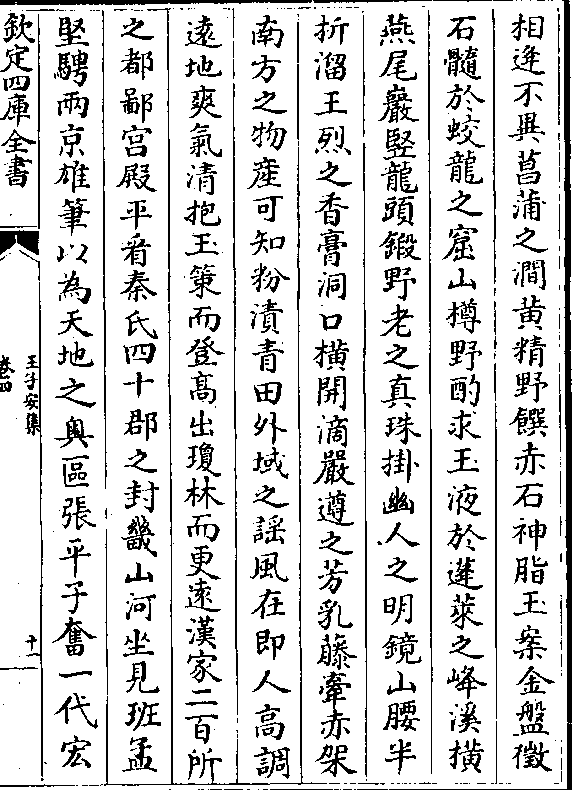 相逢不異菖蒲之澗黄精野饌赤石神脂玉案金盤徴
石髓於蛟龍之窟山樽野酌求玉液於蓬萊之峰溪横
燕尾巖竪龍頭鍛野老之真珠掛幽人之明鏡山腰半
折溜王烈之香膏洞口横開滴嚴遵之芳乳藤牽赤架
南方之物産可知粉漬青田外域之謡風在即人高調
逺地爽氣清抱玉䇿而登髙出瓊林而更逺漢家二百所
之都鄙宫殿平看秦氏四十郡之封畿山河坐見班孟
堅騁兩京雄筆以為天地之奥區張平子奮一代宏
欽定四庫全書
王子安集
卷四
十一